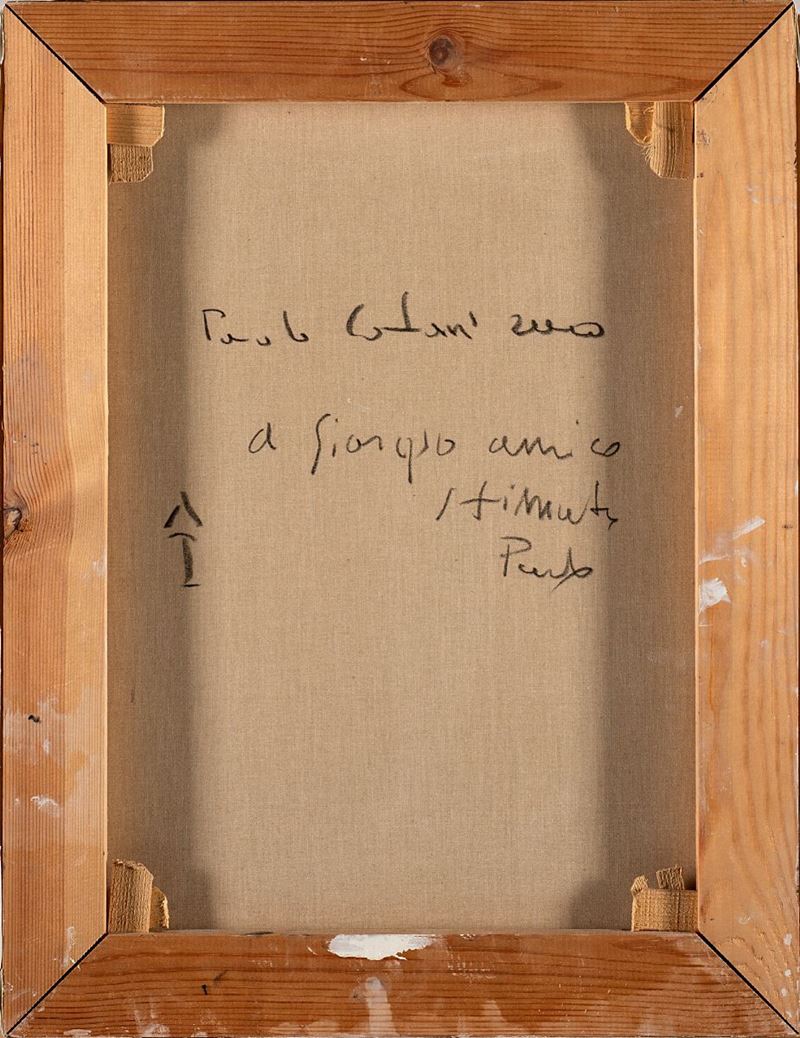 Paolo Cotani 2000
a Giorgio amico
stimato
Paolo